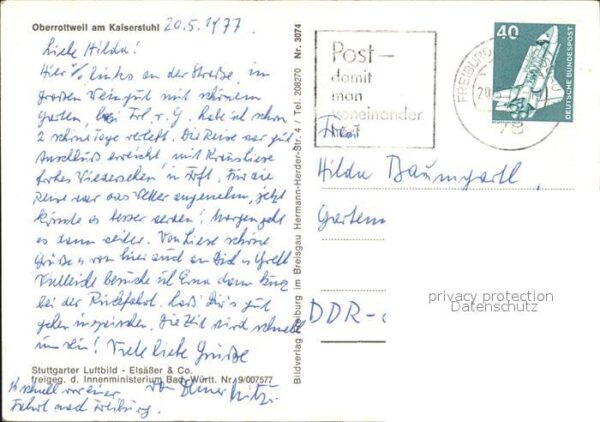 Oberrottweil am Kaiserstuhl 20.5.1977.
Liebe Hilda!
Hier links an der Straße, im
großen Weingut mit schönem
Garten, bei Frl. v. G. habe ich schon
2 schöne Tage verlebt. Die Reise war gut
Anschluß erreicht, mit
frohes Wiedersehen in Für die
Reise war das Wetter angenehm, jetzt
könnte es besser werden! Morgen geht
es dann weiter. Von Liese schöne
Grüße u. von hier auch an Dich u.
Vielleicht besuche ich Erna dann kurz
bei der Rückfahrt. Laß Dir's gut
gehen inzwischen. Die Zeit wird schnell
um sein! Viele liebe Grüße
von Deiner
schnell vor einer
Fahrt nach Freiburg.
Stuttgarter Luftbild - Elsäßer & Co.
freigeg. d. Innenministerium Bad.-Württ. Nr. 9/007577
Bildverlag Freiburg im Breisgau Hermann-Herder-Str. 4 / Tel. 208270 Nr. 3074
Post-
damit
man
voneinander
hört
FREIBURG
40
DEUTSCHE BUNDESPOST
78
Frau
Hilda Baumgartl,
Garten
DDR-
privacy protection
Datenschutz